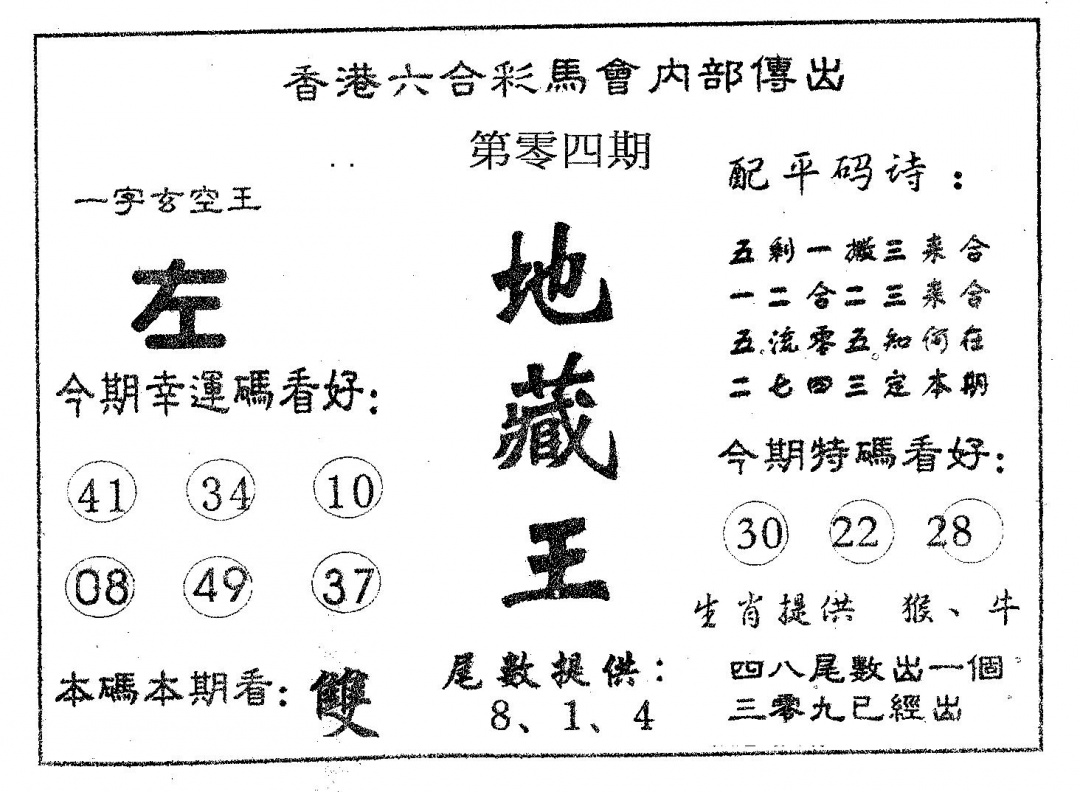 香港六合彩馬會内部傳出
第零四期
一字玄空王
左
今期幸運碼看好:
41 34 10
08 49 37
本碼本期看: 雙
地
藏
王
尾數提供:
8、1、4
配平码诗:
五剩一搬三来合
一二合二三来合
五流零五知何在
二七四三定本期
今期特碼看好:
30 22 28
生肖提供 猴、牛
四八尾數出一個
三零九已經出